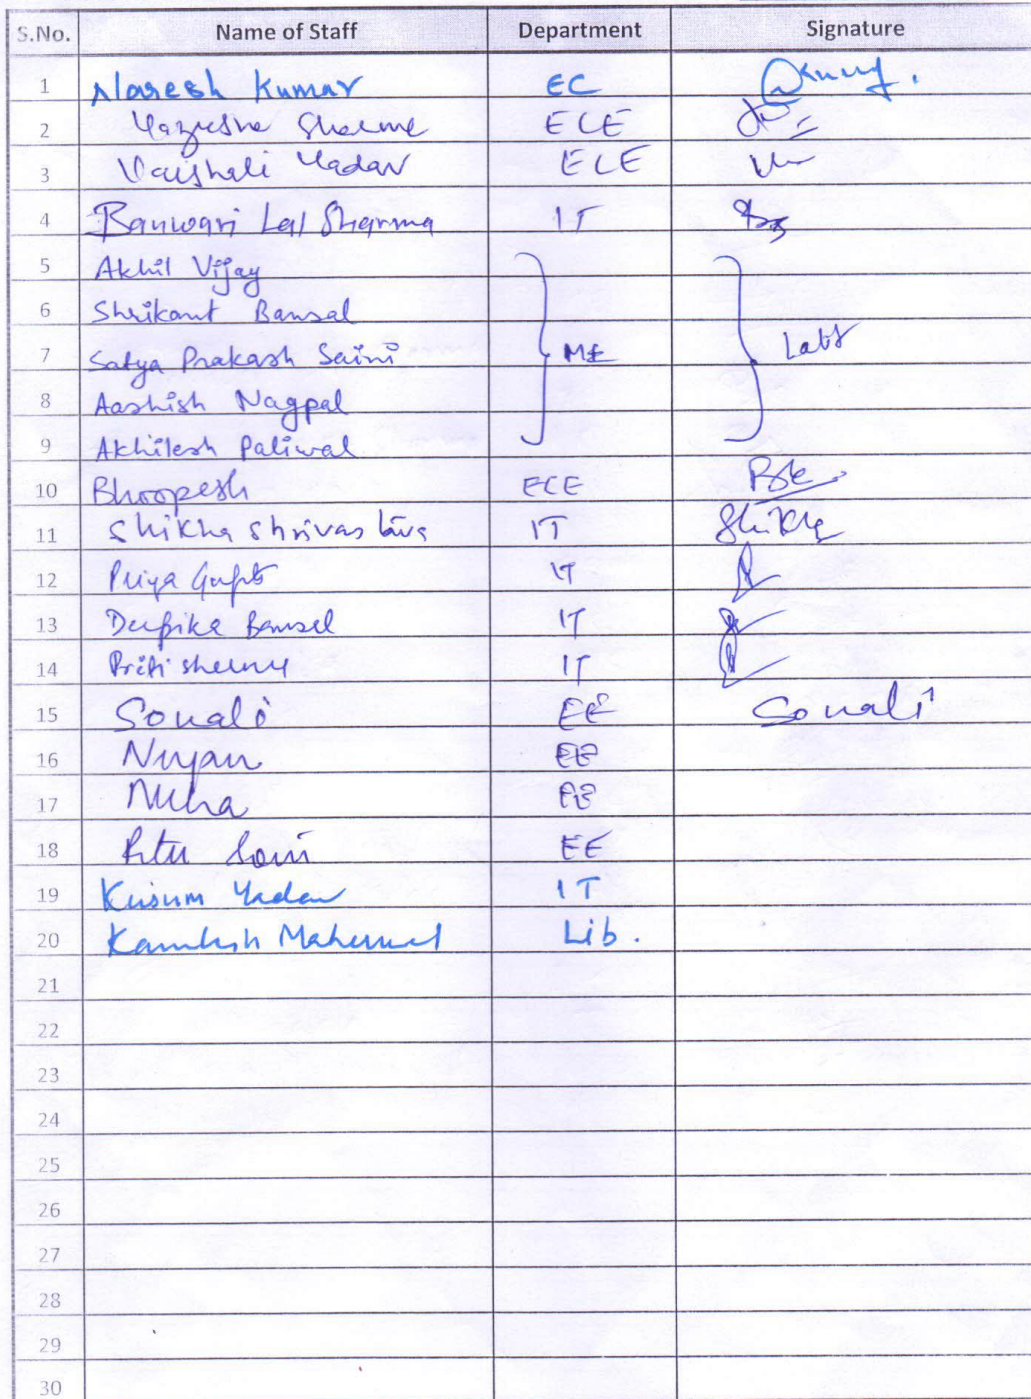 S.No. Name of Staff Department Signature
1 Naresh Kumar EC
2 ECE
3 Vaishali Yadav ECE
4 Banwari Lal Sharma IT
5 Akhil Vijay
6 Shrikant Bansal
7 Satya Prakash Saini ME
8 Aashish Nagpal
9 Akhilesh Paliwal
10 Bhoopesh ECE
11 Shikha Shrivastava IT Shikha
12 Priya Gupta IT
13 Deepika Bansal IT
14 Priti IT
15 Sonali EE Sonali
16 EE
17 EE
18 Ritu Soni EE
19 Kusum Yadav IT
20 Kamlesh Lib.
21
22
23
24
25
26
27
28
29
30